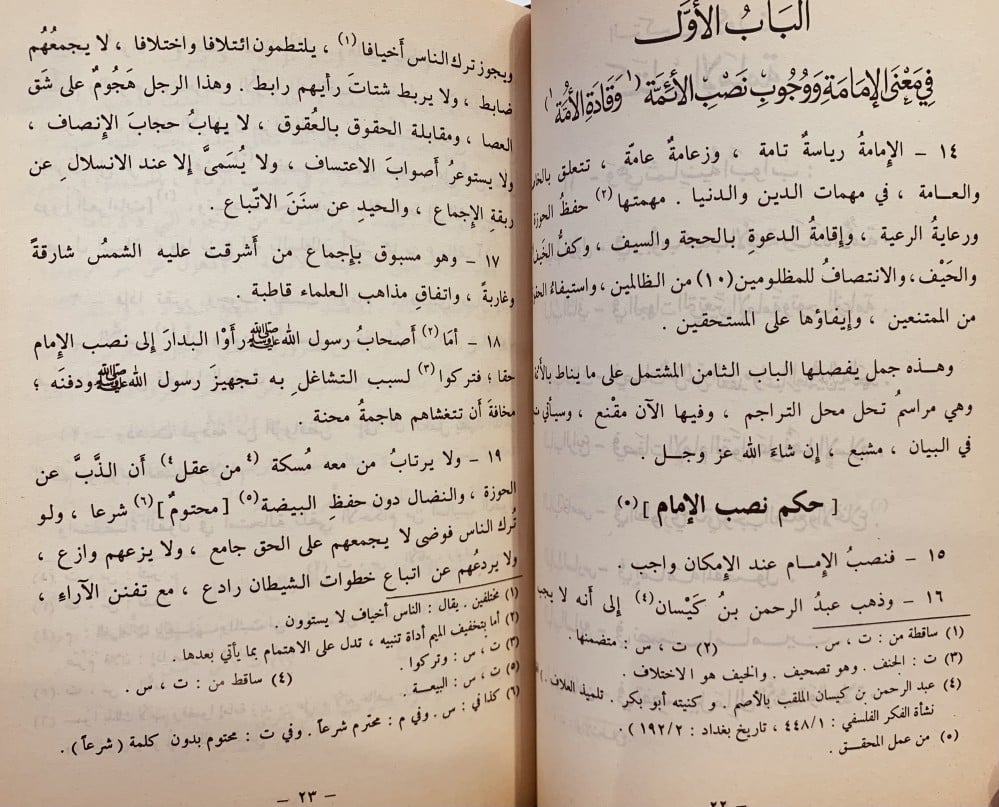 الباب الأول
في معنى الإمامة ووجوب نصب الأئمة (١ وقادة الأمة ١)
١٤ – الإمامةُ رياسةٌ تامة ، وزعامةٌ عامة ، تتعلق
والعـامـة ، في مهمات الدين والدنيا . مهمتها (٢) حفظُ الحوزة
ورعايةُ الرعية ، وإقامةُ الدعوةِ بالحجة والسيف ، وكفُّ
والحَيْف ، والانتصافُ للمظلومين (١٠) من الظالمين ، واستيفاءُ
من الممتنعين ، وإيفاؤها على المستحقين .
وهـذه جمل يفصلـها الباب الثامن المشتمـل على ما يناط
وهي مراسمُ تحل محل التراجم ، وفيها الآن مقْنع ، وسيأتي
في البيان ، مشبع ، إن شاءَ الله عز وجـل .
[ حكم نصب الإمام ] (٥)
١٥ – فنصبُ الإمـام عند الإمكان واجب .
١٦ – وذهب عبدُ الرحمن بنُ كَيْسان (٤) إلى أنه لا
(١) ساقطة من : ت ، س .
(٢) ت ، س : متضمنها .
(٣) ت : الجنف . وهو تصحيف . والخيف هو الاختلاف .
(٤) عبد الرحمن بن كيسان الملقب بالأصم . وكنيته أبو بكر . تلميذ العلاف .
نشأة الفكر الفلسفي : ١/٤٤٨ ، تاريخ بغداد : ٢/١٩٢ ) .
(٥) من عمل المحقـق .
– ٢٢ –
ويجوز ترك الناس أَخيافا (١) ، يلتطمون ائتلافا واختلافا ، لا يجمعُهُم
ضابط ، ولا يربط شتاتَ رأيهم رابط . وهذا الرجل هَجُومٌ على شَق
العصا ، ومقابلة الحقوق بالعُقوق ، لا يهابُ حجابَ الإنصاف ،
ولا يستوعرُ أصوابَ الاعتساف ، ولا يُسَمىَّ إلا عند الانسلال عن
ربقةِ الإجماع ، والحيدِ عن سنَنَ الاتّباع .
١٧ – وهو مسبوق بإجماع من أَشرقت عليه الشمسُ شارقةً
وغاربةً ، واتفاقِ مذاهب العلماء قاطبة .
١٨ – أمَا (٢) أَصحابُ رسول الله ﷺ رأَوْا البدارَ إلى نصب الإمام
حقا ؛ فتركوا (٣) لسبب التشاغل به تجهيزَ رسول الله ﷺ ودفنَه ؛
مخافةَ أَن تتغشاهم هاجمةُ محنة .
١٩ – ولا يرتابُ من معه مُسكة (٤ من عقل ٤) أن الذَّبَّ عن
الحوزة ، والنضال دون حفظِ البيضة (٥) [ محتومٌ ] (٦) شرعا ، ولـو
تُرك الناس فوضى لا يجمعهم على الحق جامع ، ولا يزعهم وازع ،
ولا يردعُهم عن اتباع خطوات الشيطان رادع ، مع تفنن الآراء ،
(١) مختلفين . يقال : الناس أخياف لا يستوون .
(٢) أما بتخفيف الميم أداة تنبيه ، تدل على الاهتمام بما يأتي بعدها .
(٣) ت ، س : وتركوا .
(٤) ساقط من : ت ، س .
(٥) ت ، س : البيعة .
(٦) كذا في : س . وفي م : محترم شرعاً . وفي ت : محتوم بدون كلمة ( شرعاً ) .
– ٢٣ –